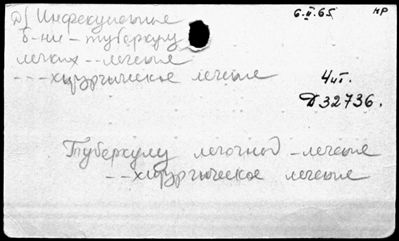 Д) Инфекционные
б-ни - туберкул
легких - - лечение
- - - хирургическое лечение
6.II.65. НР
4 чт.
D32736.
Туберкулез легочный - лечение
- - хирургическое лечение